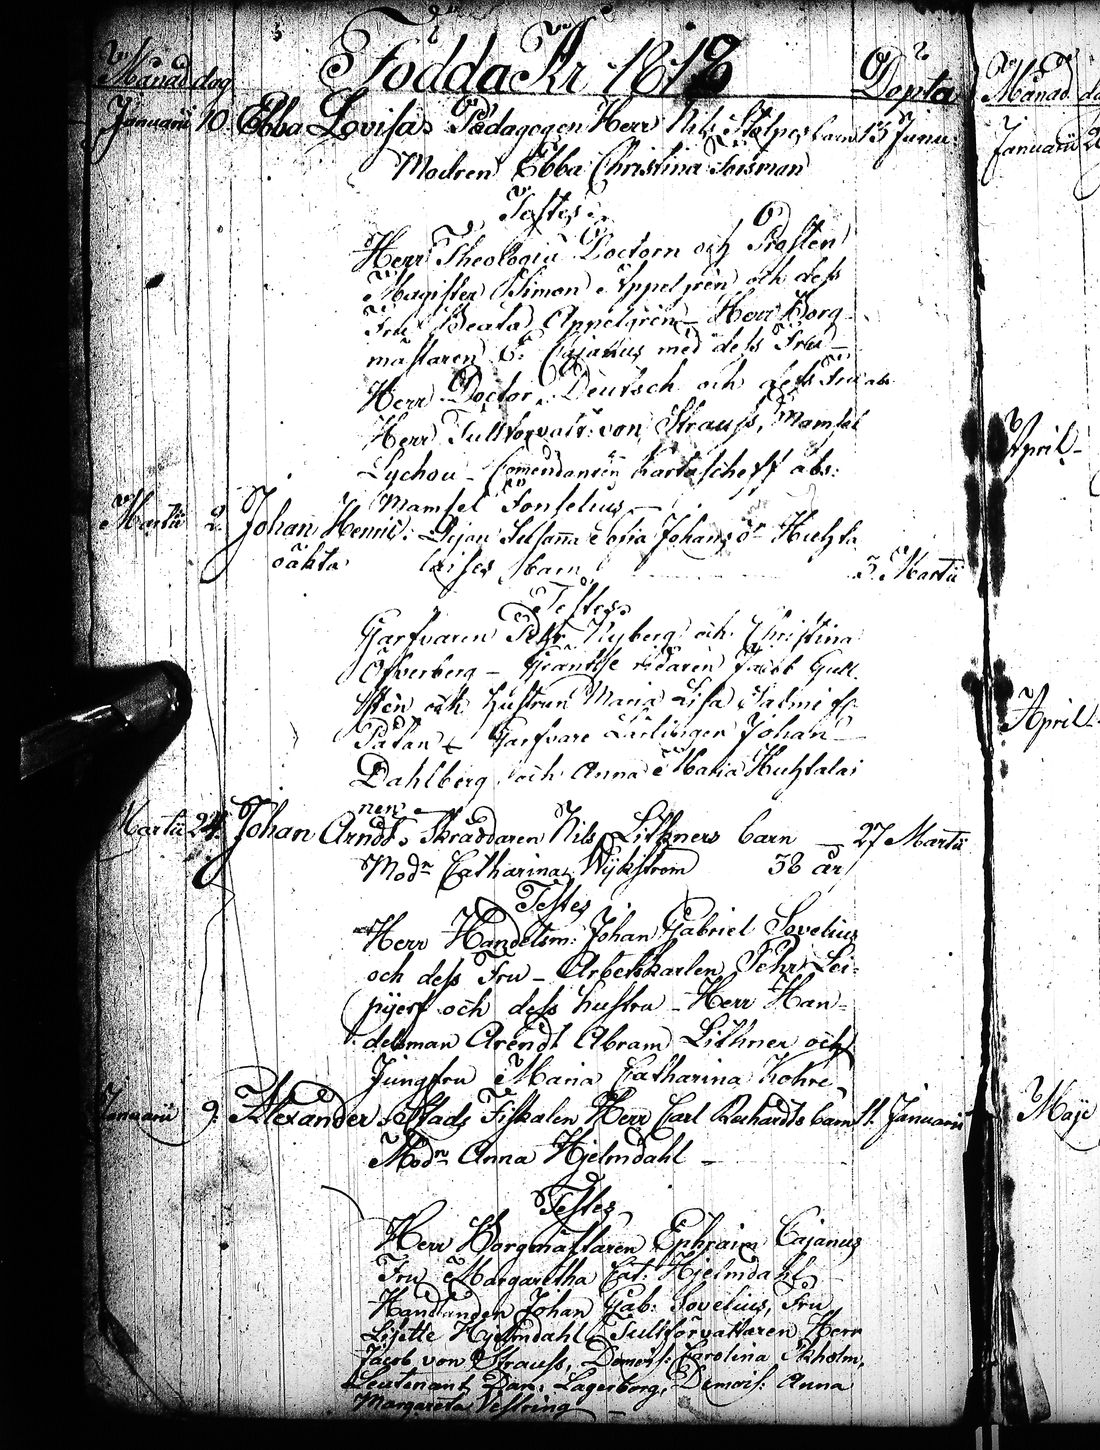 Månad dag Födda År 1818 Döpta
Januarii 10. Ebba Lovisa, Pedagogen Herr Nils Stolpes barn 13 Janu:
Modren Ebba Christina Forsman
Testes
Herr Theologiæ Doctorn och Prosten
Magister Simon Appelgren och dess
Fru Beata Appelgren - Herr Borg
mästaren E: Cajanus med dess Fru -
Herr Doctor Deutsch och dess Fru abs
Herr Tullförvalt: von Strauss, Mamsel
Lychou - Comendanten Kartascheff abs:
Mamsel Fonselius
Martii 2. Johan Henric: Pigan Susanna Sofia Johans dr Huhta
oäkta laises barn 3. Martii
Testes
Garfvaren Petr Nyberg och Christina
Öfverberg - Gräntse ridaren Jacob Gull
sten och hustrun Maria Lisa
- Garfvare Lärlingen Johan
Dahlberg och Anna Maria Huhtalai
nen
Martii 24. Johan Arndt, Skräddaren Nils Lithners barn - 27 Martii
Modn Catharina Wijkström 38 år
Testes
Herr Handelsm: Johan Gabriel Sovelius
och dess Fru - Arbetskarlen Pehr Lei-
och dess hustru - Herr Han-
delsman Arendt Abram Lithner och
Jungfru Maria Catharina
Januarii 9. Alexander, Stads Fiskalen Herr Carl barn 11. Januarii
Modn Anna Hjelmdahl -
Testes
Herr Borgmästaren Ephraim Cajanus
Fru Margaretha Cat: Hjelmdahl,
Handlanden Johan Gab: Sovelius, Fru
Lisette Hjelmdahl, Tullförvaltaren Herr
Jacob von Strauss, Demois: Carolina Ekholm,
Leutenant Dan: Lagerborg, Demois: Anna
Margareta Vestring -
Månad
Januarii
April -
April
Maji